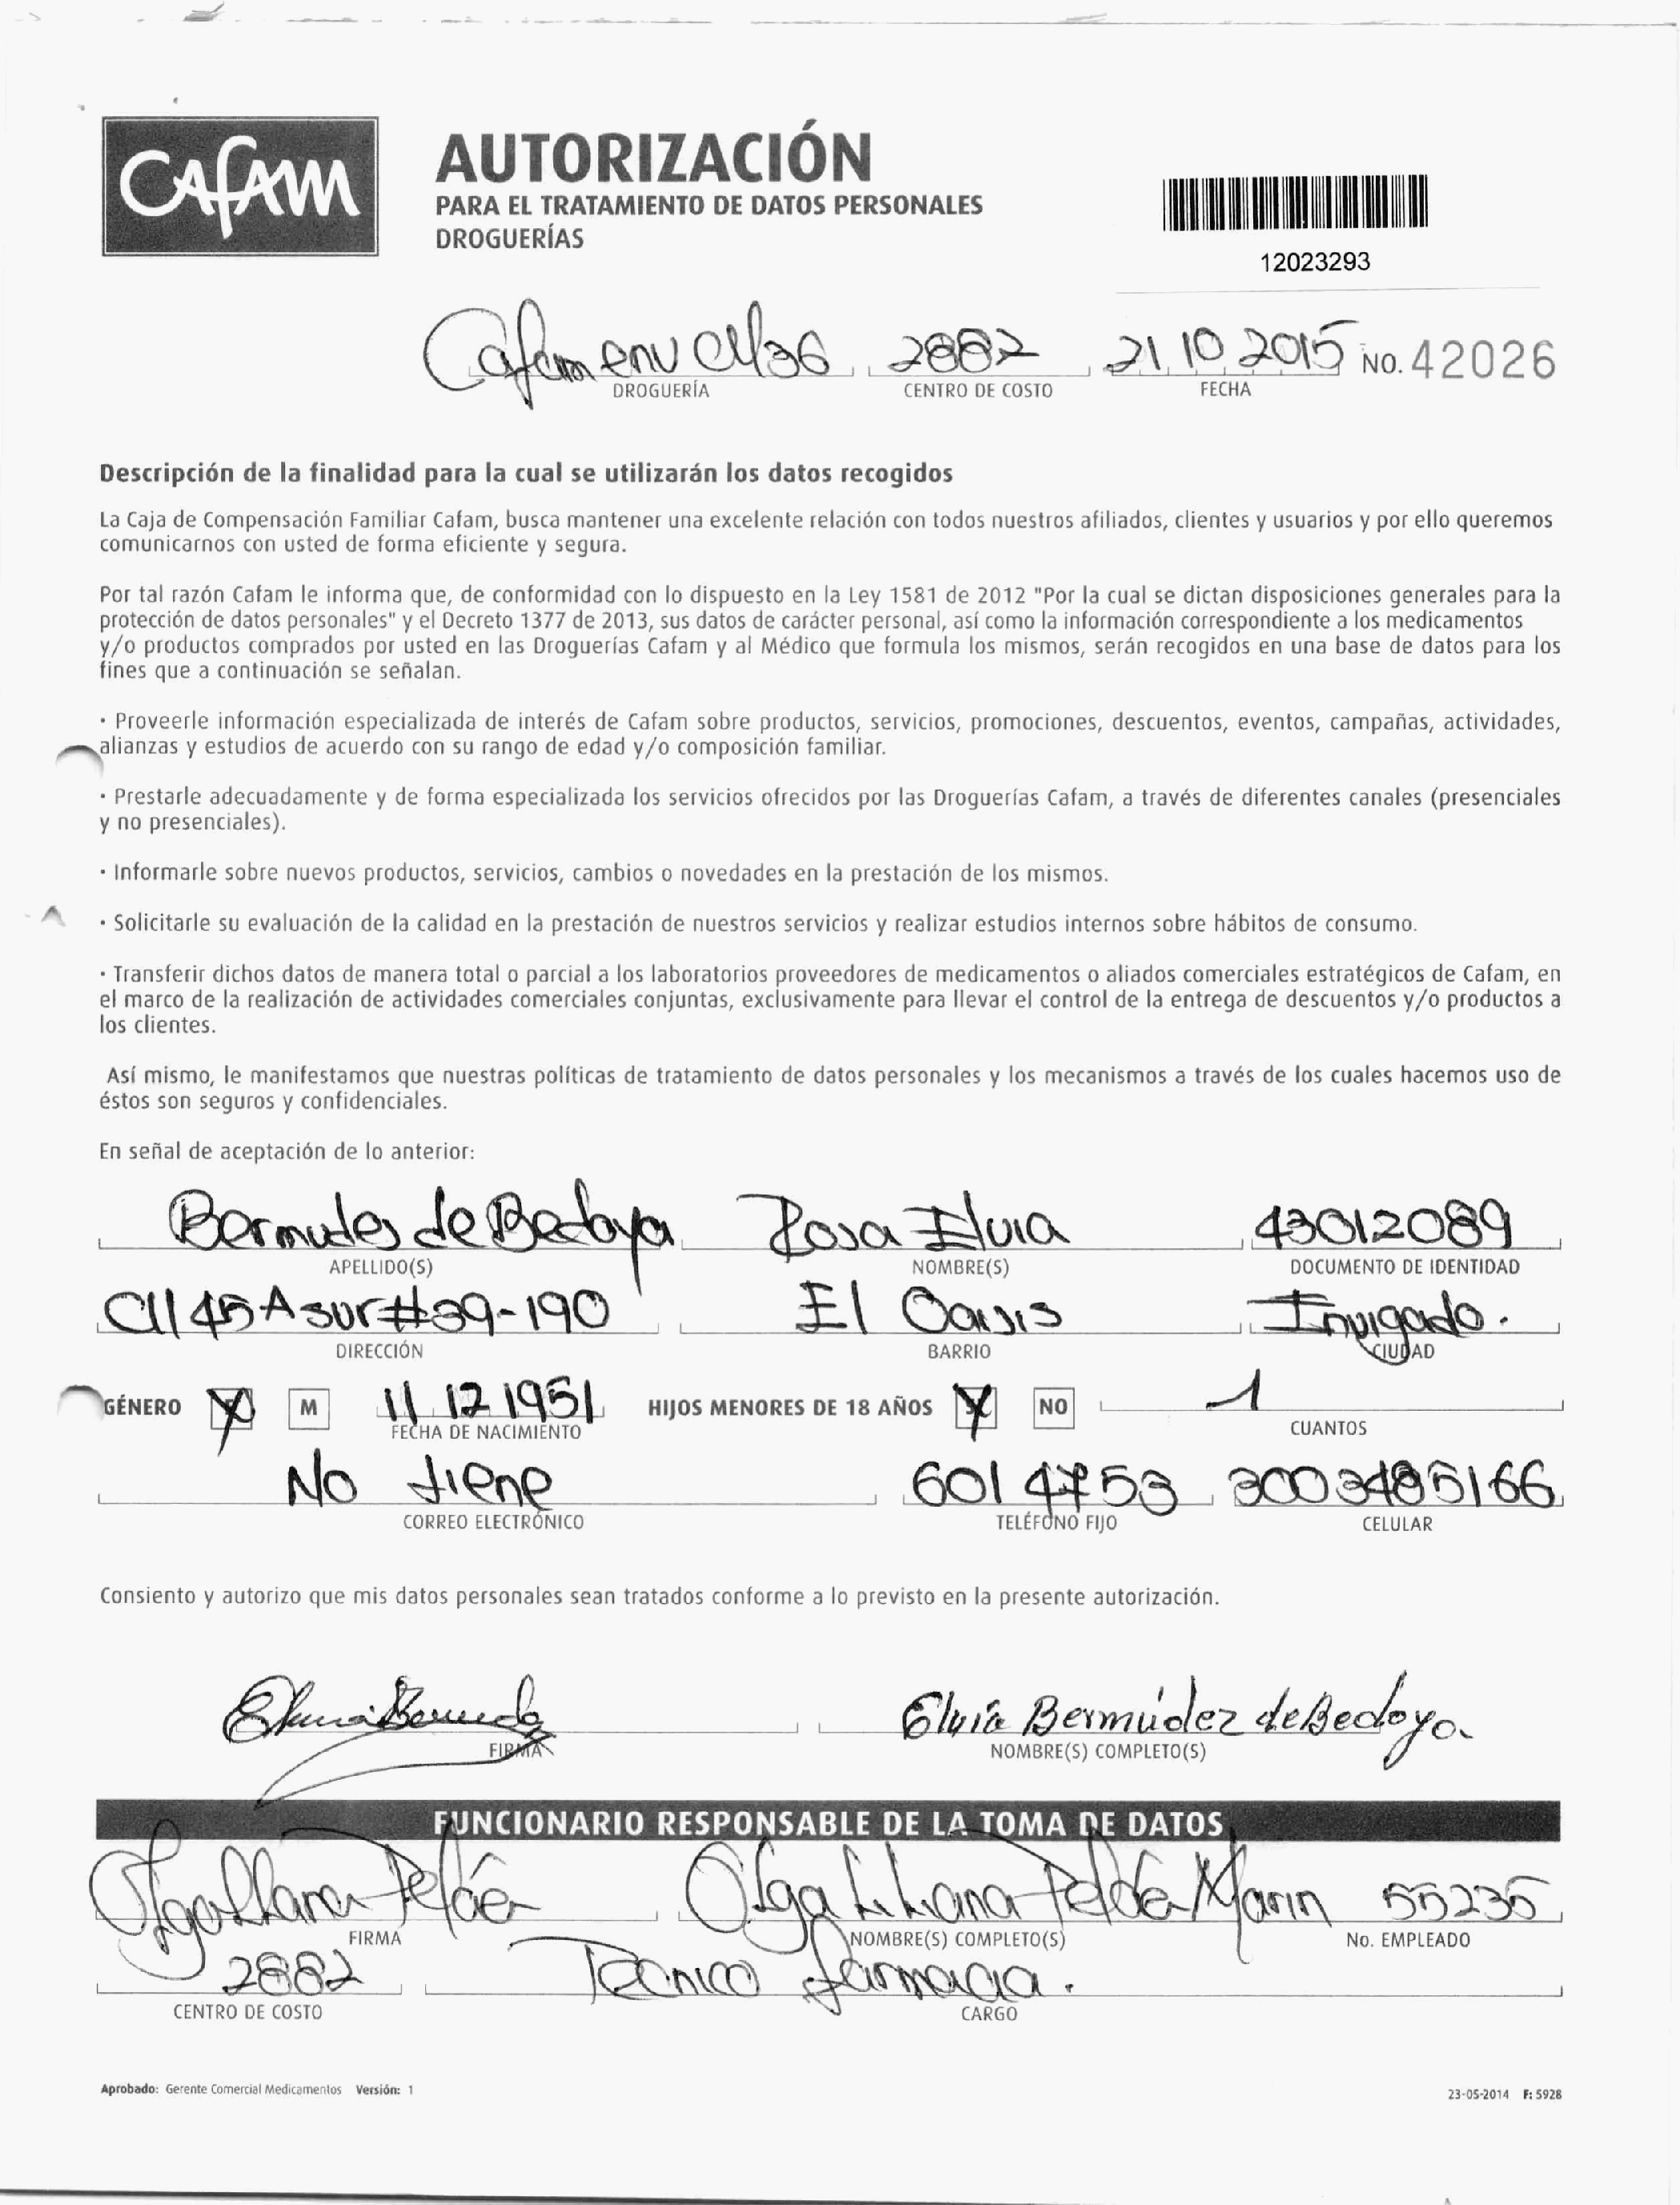 CAFAM
AUTORIZACIÓN
PARA EL TRATAMIENTO DE DATOS PERSONALES
DROGUERÍAS
12023293
Cafam env Cll36 2882 21 10 2015 NO. 42026
DROGUERÍA CENTRO DE COSTO FECHA
Descripción de la finalidad para la cual se utilizarán los datos recogidos
La Caja de Compensación Familiar Cafam, busca mantener una excelente relación con todos nuestros afiliados, clientes y usuarios y por ello queremos
comunicarnos con usted de forma eficiente y segura.
Por tal razón Cafam le informa que, de conformidad con lo dispuesto en la Ley 1581 de 2012 "Por la cual se dictan disposiciones generales para la
protección de datos personales" y el Decreto 1377 de 2013, sus datos de carácter personal, así como la información correspondiente a los medicamentos
y/o productos comprados por usted en las Droguerías Cafam y al Médico que formula los mismos, serán recogidos en una base de datos para los
fines que a continuación se señalan.
· Proveerle información especializada de interés de Cafam sobre productos, servicios, promociones, descuentos, eventos, campañas, actividades,
alianzas y estudios de acuerdo con su rango de edad y/o composición familiar.
· Prestarle adecuadamente y de forma especializada los servicios ofrecidos por las Droguerías Cafam, a través de diferentes canales (presenciales
y no presenciales).
· Informarle sobre nuevos productos, servicios, cambios o novedades en la prestación de los mismos.
· Solicitarle su evaluación de la calidad en la prestación de nuestros servicios y realizar estudios internos sobre hábitos de consumo.
· Transferir dichos datos de manera total o parcial a los laboratorios proveedores de medicamentos o aliados comerciales estratégicos de Cafam, en
el marco de la realización de actividades comerciales conjuntas, exclusivamente para llevar el control de la entrega de descuentos y/o productos a
los clientes.
Así mismo, le manifestamos que nuestras políticas de tratamiento de datos personales y los mecanismos a través de los cuales hacemos uso de
éstos son seguros y confidenciales.
En señal de aceptación de lo anterior:
Bermudes de Bedoya Rosa Elvia 43012089
APELLIDO(S) NOMBRE(S) DOCUMENTO DE IDENTIDAD
Cll 45 A sur # 39-190 El Oasis Invigado.
DIRECCIÓN BARRIO CIUDAD
GÉNERO M 11 12 1951 HIJOS MENORES DE 18 AÑOS NO 1
FECHA DE NACIMIENTO CUANTOS
No tiene 6014753 3003485166
CORREO ELECTRÓNICO TELÉFONO FIJO CELULAR
Consiento y autorizo que mis datos personales sean tratados conforme a lo previsto en la presente autorización.
Elvia Bermúdez de Bedoya
FIRMA NOMBRE(S) COMPLETO(S)
FUNCIONARIO RESPONSABLE DE LA TOMA DE DATOS
Olga Liliana Marin 55235
FIRMA NOMBRE(S) COMPLETO(S) No. EMPLEADO
2882 Tecnico farmacia.
CENTRO DE COSTO CARGO
Aprobado: Gerente Comercial Medicamentos Versión: 1
23-05-2014 F: 5928